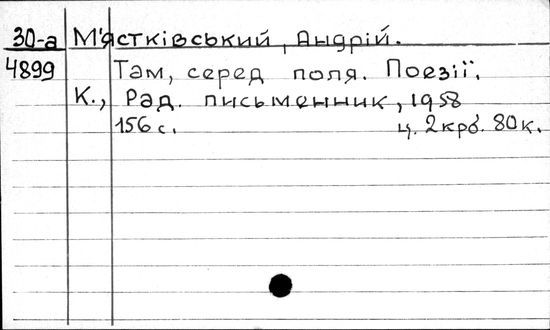 30-а М'ястківський, Андрій.
4899 Там, серед поля. Поезії.
К., Рад. письменник, 1958
156 с. ц. 2 крб. 80 к.